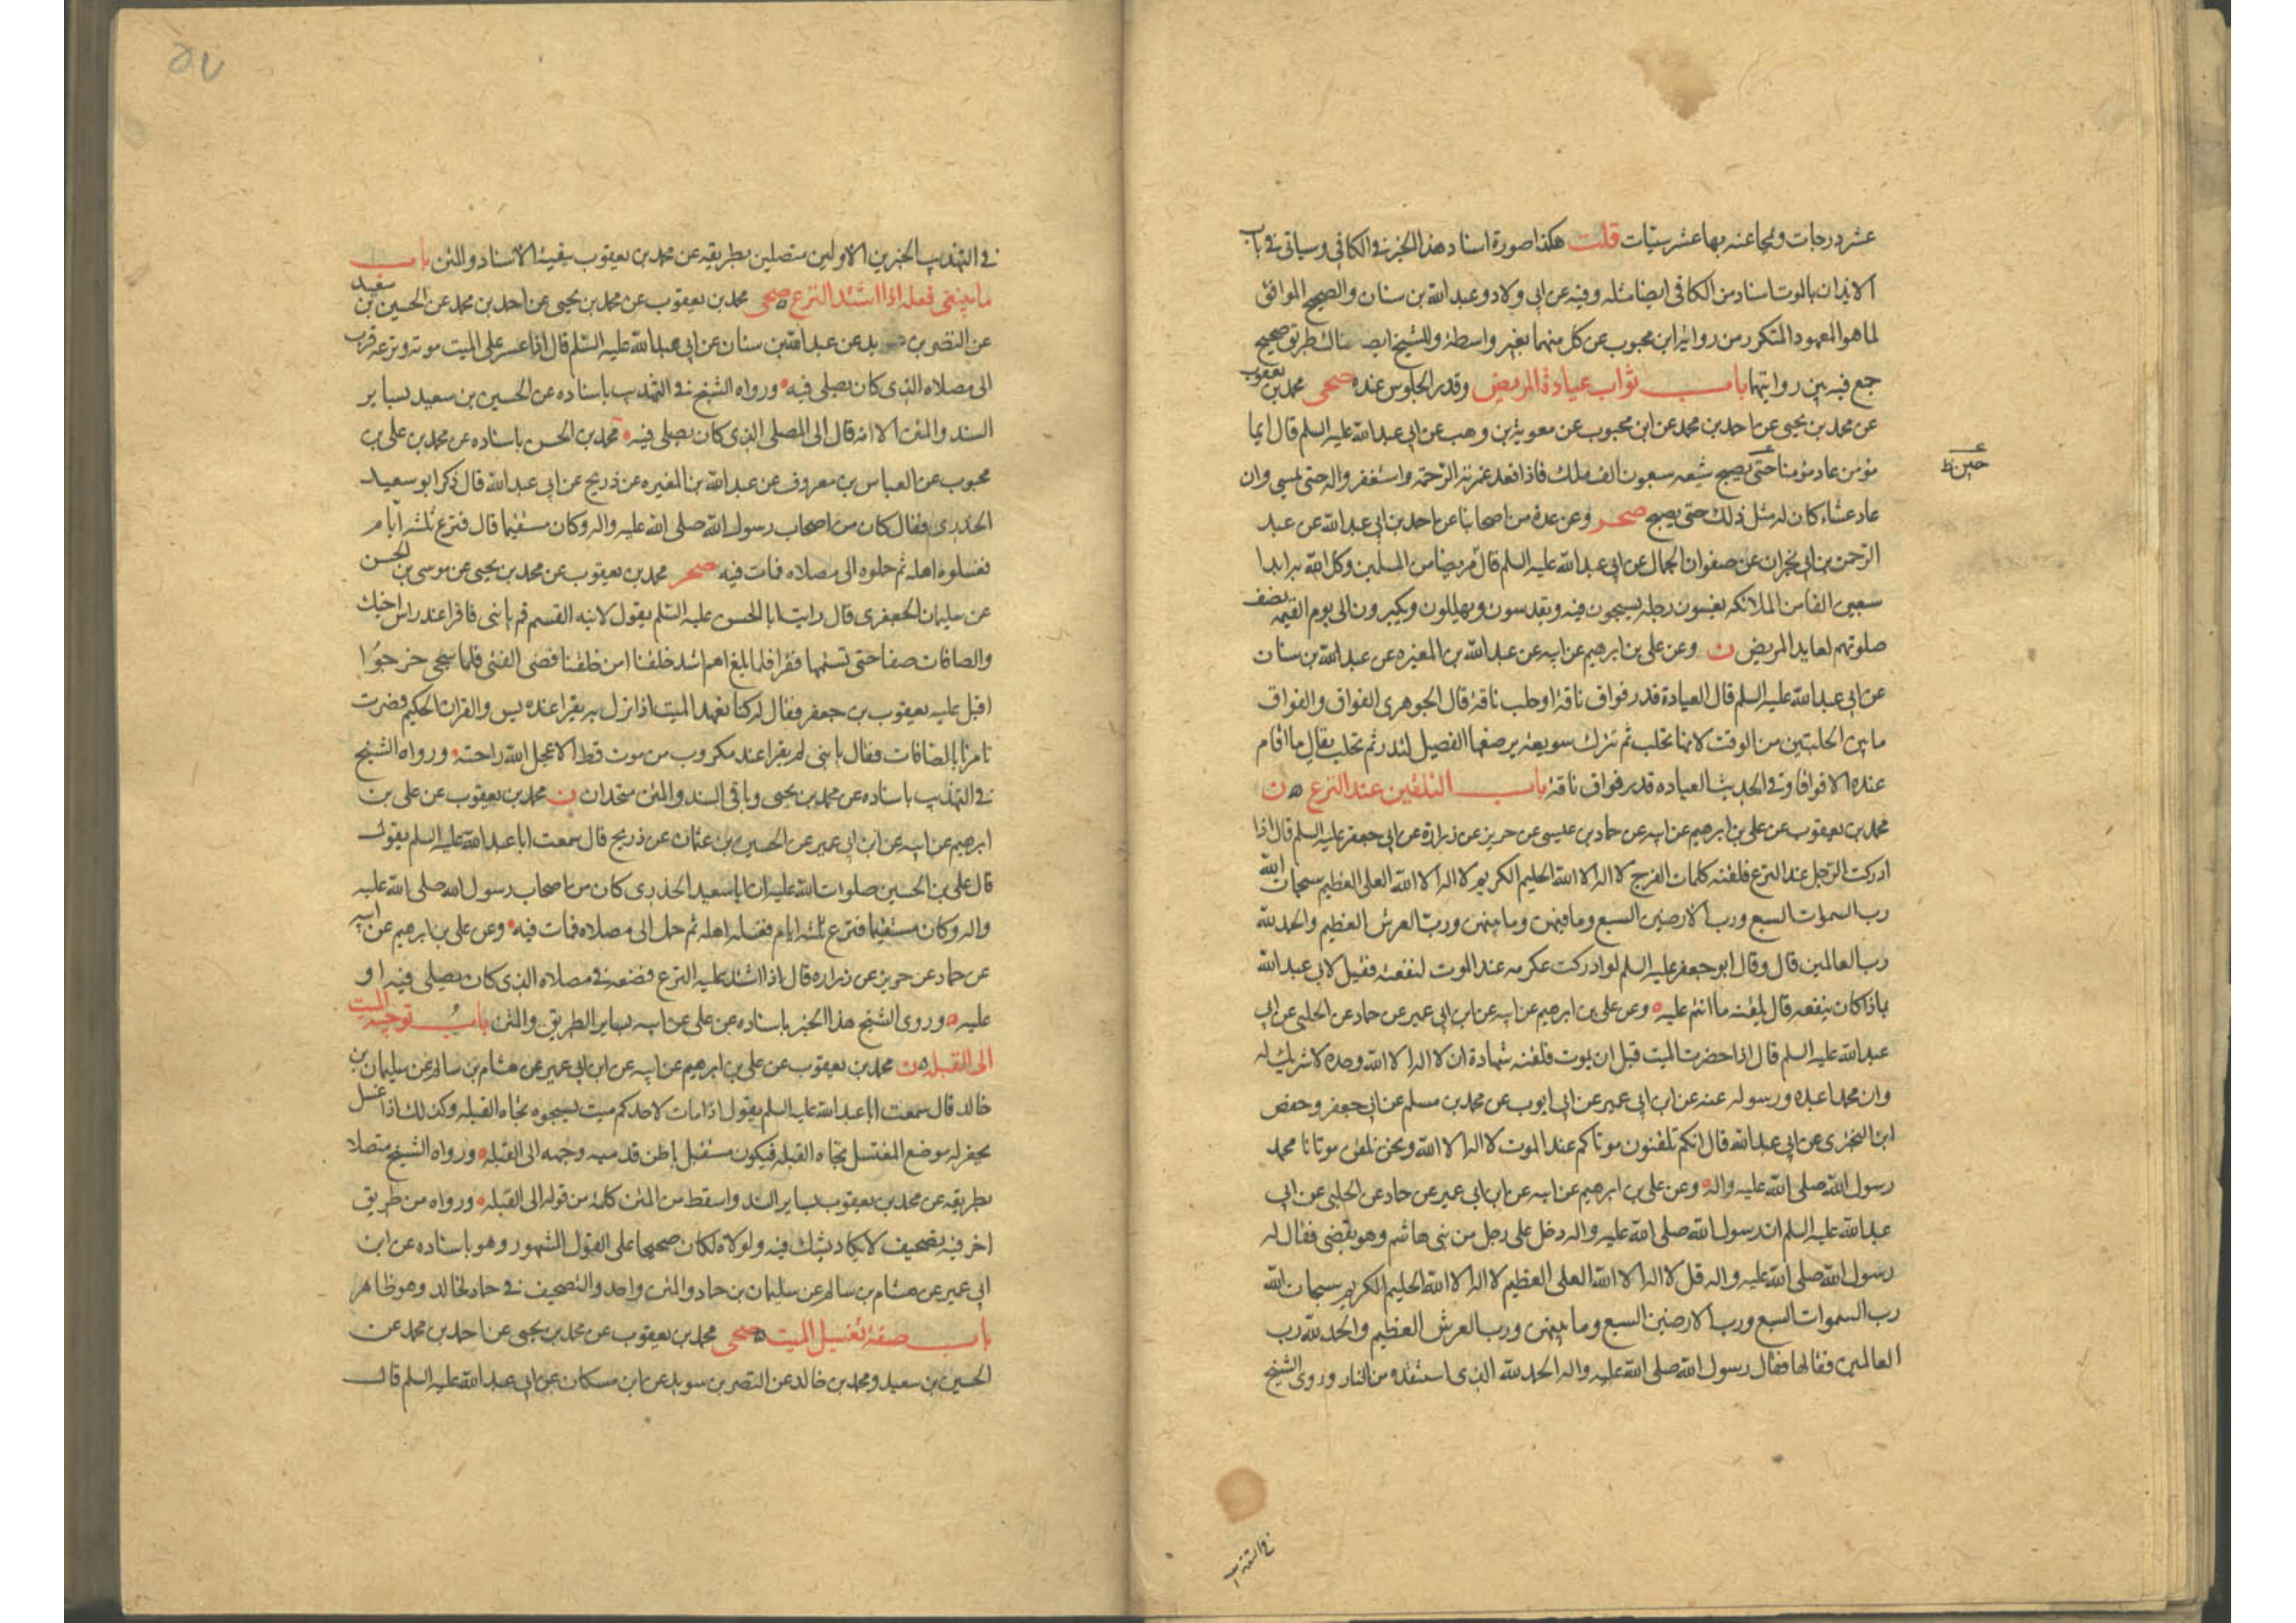 عشر درجات ومحا عنه بها عشر سيئات قلت هكذا صورة اسناد هذا الخبر في الكافي وسياتي في باب
الايذان بالموت اسناد من الكافي ايضا مثله وفيه عن ابي ولاد وعبد الله بن سنان والصحيح الموافق
لما هو المعهود المتكرر من رواية ابن محبوب عن كل منهما بغير واسطة وللشيخ ايضا هناك طريق صحيح
جمع فيه بين روايتهما باب ثواب عيادة المريض وقدر الجلوس عنده صحي محمد بن يعقوب
عن محمد بن يحيى عن احمد بن محمد عن ابن محبوب عن معوية بن وهب عن ابي عبد الله عليه السلم قال ايما
مؤمن عاد مؤمنا حتى يصبح شيعه سبعون الف ملك فاذا قعد غمرته الرحمة واستغفروا له حتى يمسي وان
حين
عاد عشاء كان له مثل ذلك حتى يصبح صحر وعن عدة من اصحابنا عن احمد بن ابي عبد الله عن عبد
الرحمن بن ابي نجران عن صفوان الجمال عن ابي عبد الله عليه السلم قال مريضا من المسلمين وكل الله به ابدا
سبعين الفا من الملائكه يغشون رحله يسبحون فيه ويقدسون ويهللون ويكبرون الى يوم القيمه نصف
صلوتهم لعايد المريض ن وعن علي بن ابرهيم عن ابيه عن عبد الله بن المغيره عن عبد الله بن سنان
عن ابي عبد الله عليه السلم قال العيادة قدر فواق ناقة او حلب ناقة قال الجوهري الفواق والفواق
ما بين الحلبتين من الوقت لانها تحلب ثم تترك سويعة يرضعها الفصيل لتدر ثم تحلب يقال ما اقام
عنده الا فواقا وفي الحديث العياده قدر فواق ناقة باب التلقين عند النزع ن
محمد بن يعقوب عن علي بن ابرهيم عن ابيه عن حماد بن عيسى عن حريز عن زرارة عن ابي جعفر عليه السلم قال اذا
ادركت الرجل عند النزع فلقنه كلمات الفرج لا اله الا الله الحليم الكريم لا اله الا الله العلي العظيم سبحان الله
رب السموات السبع ورب الارضين السبع وما فيهن وما بينهن ورب العرش العظيم والحمد لله
رب العالمين قال وقال ابو جعفر عليه السلم لو ادركت عكرمه عند الموت لنفعته فقيل لابي عبد الله
بماذا كان ينفعه قال يلقنه ما انتم عليه وعن علي بن ابرهيم عن ابيه عن ابن ابي عمير عن حماد عن الحلبي عن ابي
عبد الله عليه السلم قال اذا حضرت الميت قبل ان يموت فلقنه شهادة ان لا اله الا الله وحده لا شريك له
وان محمدا عبده ورسوله عنه عن ابن ابي عمير عن ابي ايوب عن محمد بن مسلم عن ابي جعفر وحفص
ابن البختري عن ابي عبد الله قال انكم تلقنون موتاكم عند الموت لا اله الا الله ونحن نلقن موتانا محمد
رسول الله صلى الله عليه واله وعن علي بن ابرهيم عن ابيه عن ابن ابي عمير عن حماد عن الحلبي عن ابي
عبد الله عليه السلم ان رسول الله صلى الله عليه واله دخل على رجل من بني هاشم وهو يقضي فقال له
رسول الله صلى الله عليه واله قل لا اله الا الله العلي العظيم لا اله الا الله الحليم الكريم سبحان الله
رب السموات السبع ورب الارضين السبع وما بينهن ورب العرش العظيم والحمد لله رب
العالمين فقالها فقال رسول الله صلى الله عليه واله الحمد لله الذي استنقذه من النار وروى الشيخ
في التهذيب
في التهذيب الخبرين الاولين متصلين بطريقه عن محمد بن يعقوب ببقية الاسناد والمتن باب
ما ينبغي فعله اذا اشتد النزع صحي محمد بن يعقوب عن محمد بن يحيى عن احمد بن محمد عن الحسين بن سعيد
عن النضر بن سويد عن عبد الله بن سنان عن ابي عبد الله عليه السلم قال اذا عسر على الميت موته ونزعه قرب
الى مصلاه الذي كان يصلي فيه ورواه الشيخ في التهذيب باسناده عن الحسين بن سعيد بساير
السند والمتن الا انه قال الى المصلى الذي كان يصلي فيه محمد بن الحسن باسناده عن محمد بن علي بن
محبوب عن العباس بن معروف عن عبد الله بن المغيره عن ذريح عن ابي عبد الله قال ذكر ابو سعيد
الخدري فقال كان من اصحاب رسول الله صلى الله عليه واله وكان مستقيما قال فنزع ثلثة ايام
فغسلوه اهله ثم حملوه الى مصلاه فمات فيه صحر محمد بن يعقوب عن محمد بن يحيى عن موسى بن الحسن
عن سليمان الجعفري قال رايت ابا الحسن عليه السلم يقول لابنه القسم قم يا بني فاقرا عند راس اخيك
والصافات صفا حتى تستتمها فقرا فلما بلغ اهم اشد خلقنا امن خلقنا قضى الفتى فلما سجي خرجوا
اقبل عليه يعقوب بن جعفر فقال له كنا نعهد الميت اذا نزل به يقرا عنده يس والقران الحكيم فصرت
تامرنا بالصافات فقال يا بني لم يقرا عند مكروب من موت قط الا عجل الله راحته ورواه الشيخ
في التهذيب باسناده عن محمد بن يحيى وباقي السند والمتن متحدان ن محمد بن يعقوب عن علي بن
ابرهيم عن ابيه عن ابن ابي عمير عن الحسين بن عثمان عن ذريح قال سمعت ابا عبد الله عليه السلم يقول
قال علي بن الحسين صلوات الله عليه ان ابا سعيد الخدري كان من اصحاب رسول الله صلى الله عليه
واله وكان مستقيما فنزع ثلثة ايام فغسله اهله ثم حمل الى مصلاه فمات فيه وعن علي بن ابرهيم عن ابيه
عن حماد عن حريز عن زراره قال اذا اشتد عليه النزع فضعه في مصلاه الذي كان يصلي فيه او
عليه وروى الشيخ هذا الخبر باسناده عن علي عن ابيه بساير الطريق والمتن باب توجيه الميت
الى القبله ن محمد بن يعقوب عن علي بن ابرهيم عن ابيه عن ابن ابي عمير عن هشام بن سالم عن سليمان بن
خالد قال سمعت ابا عبد الله عليه السلم يقول اذا مات لاحدكم ميت فسجوه تجاه القبله وكذلك اذا غسل
يحفر له موضع المغتسل تجاه القبله فيكون مستقبل باطن قدميه ووجهه الى القبله ورواه الشيخ متصلا
بطريقه عن محمد بن يعقوب بساير السند واسقط من المتن كلمة من قوله الى القبله ورواه من طريق
اخر فيه تصحيف لا يكاد يشك فيه ولولاه لكان صحيحا على القول المشهور وهو باسناده عن ابن
ابي عمير عن هشام بن سالم عن سليمان بن حماد والمتن واحد والتصحيف في حماد لخالد وهو ظاهر
باب صفة تغسيل الميت صحي محمد بن يعقوب عن محمد بن يحيى عن احمد بن محمد عن
الحسين بن سعيد ومحمد بن خالد عن النضر بن سويد عن ابن مسكان عن ابي عبد الله عليه السلم قال